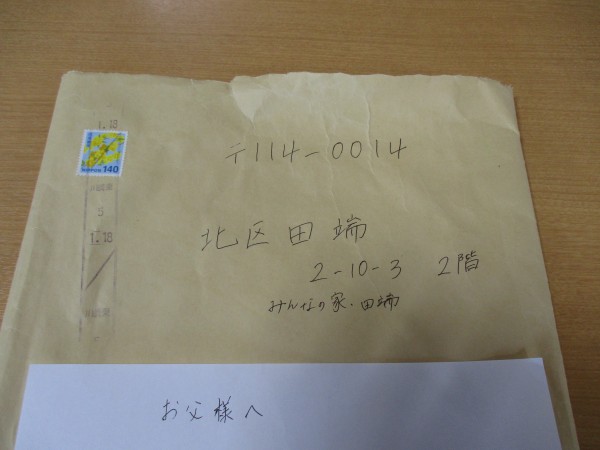 1.18
140
5
1.18
〒114-0014
北区田端
2-10-3 2階
みんなの家・田端
お父様へ